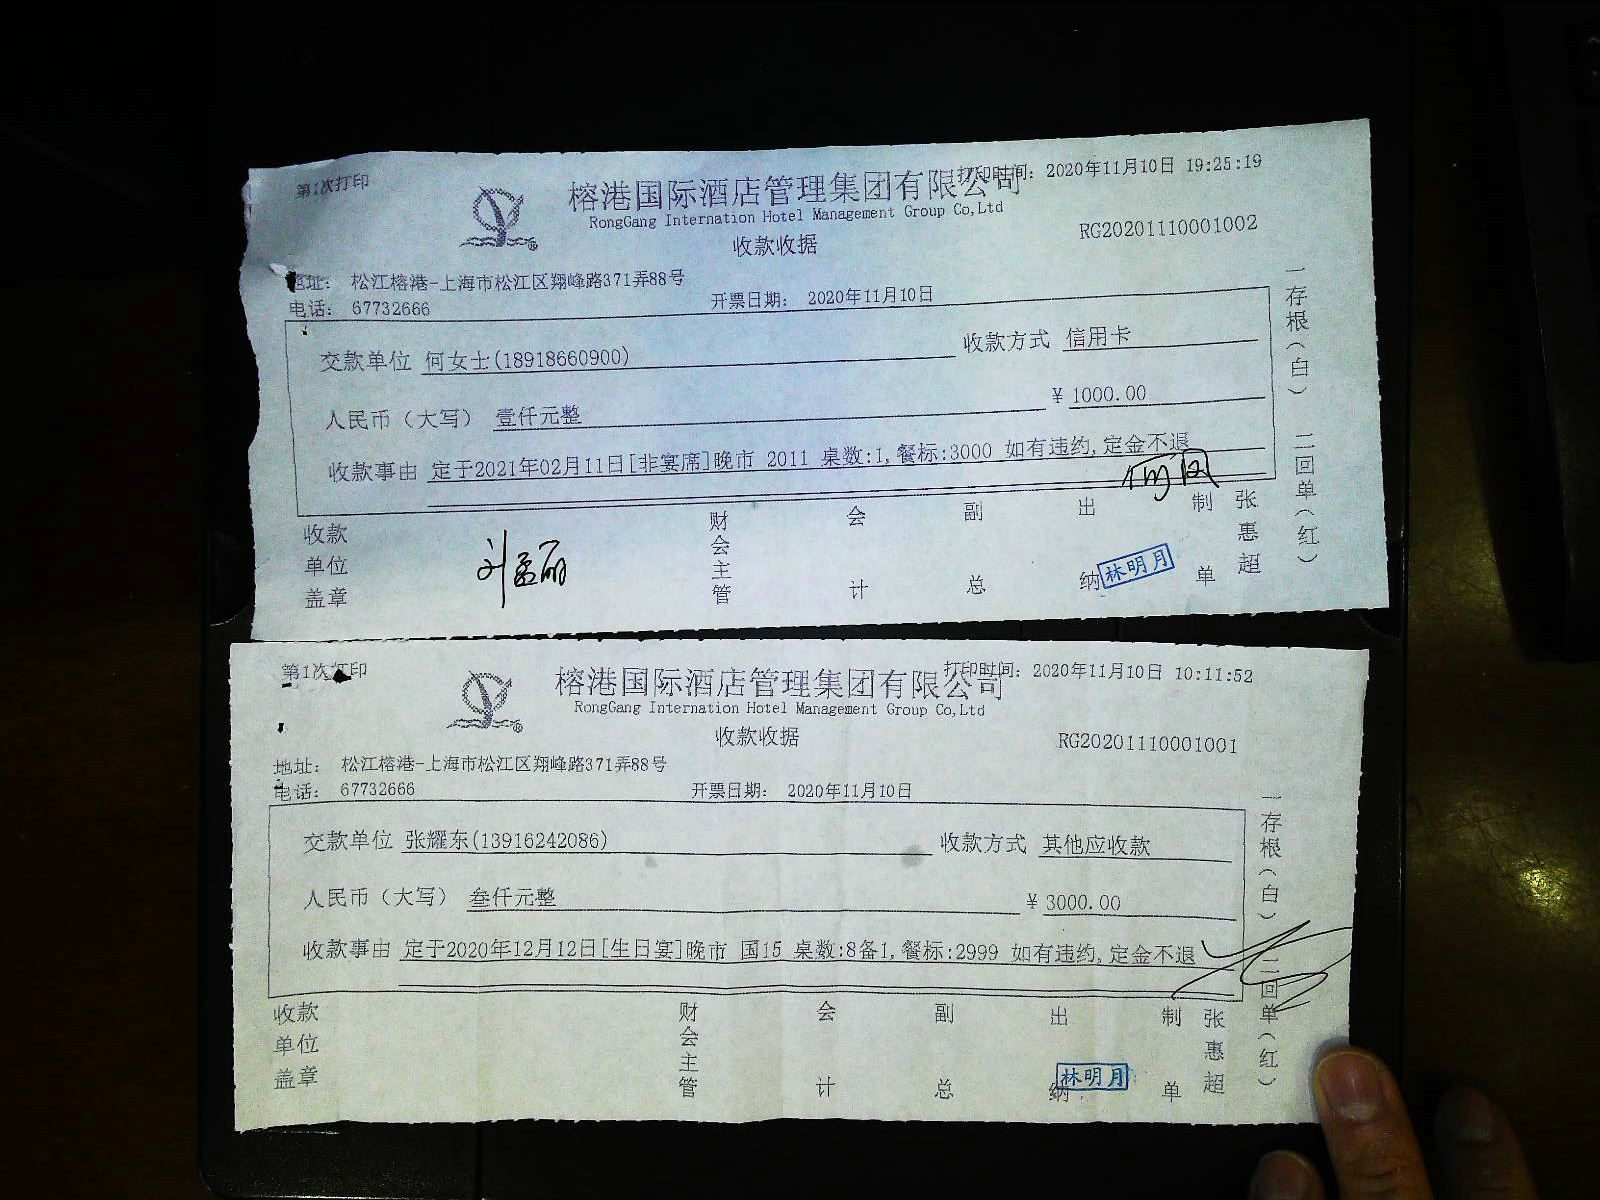 第1次打印
打印时间: 2020年11月10日 19:25:19
榕港国际酒店管理集团有限公司
RongGang Internation Hotel Management Group Co,Ltd
收款收据
RG20201110001002
地址: 松江榕港-上海市松江区翔峰路371弄88号
电话: 67732666 开票日期: 2020年11月10日
交款单位 何女士(18918660900) 收款方式 信用卡
人民币（大写） 壹仟元整 ¥ 1000.00
收款事由 定于2021年02月11日[非宴席]晚市 2011 桌数:1,餐标:3000 如有违约,定金不退
收款单位盖章 财会主管 会计 副总 出纳 林明月 制单 张惠超
一存根（白） 二回单（红）
第1次打印
打印时间: 2020年11月10日 10:11:52
榕港国际酒店管理集团有限公司
RongGang Internation Hotel Management Group Co,Ltd
收款收据
RG20201110001001
地址: 松江榕港-上海市松江区翔峰路371弄88号
电话: 67732666 开票日期: 2020年11月10日
交款单位 张耀东(13916242086) 收款方式 其他应收款
人民币（大写） 叁仟元整 ¥ 3000.00
收款事由 定于2020年12月12日[生日宴]晚市 国15 桌数:8备1,餐标:2999 如有违约,定金不退
收款单位盖章 财会主管 会计 副总 出纳 林明月 制单 张惠超
一存根（白） 二回单（红）